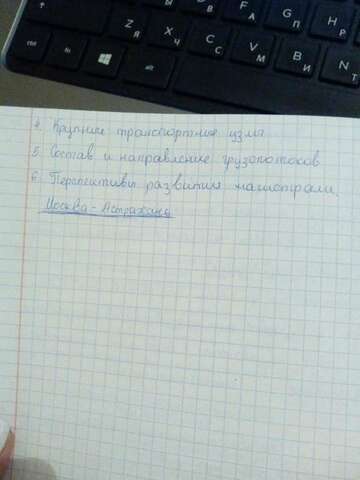 Z Я
X Ч
C С
V М
B И
N Т
F А
G П
H Р
ctrl
fn
alt
4. Крупные транспортные узлы
5. Состав и направление грузопотоков
6. Перспективы развития магистрали.
Москва - Астрахань